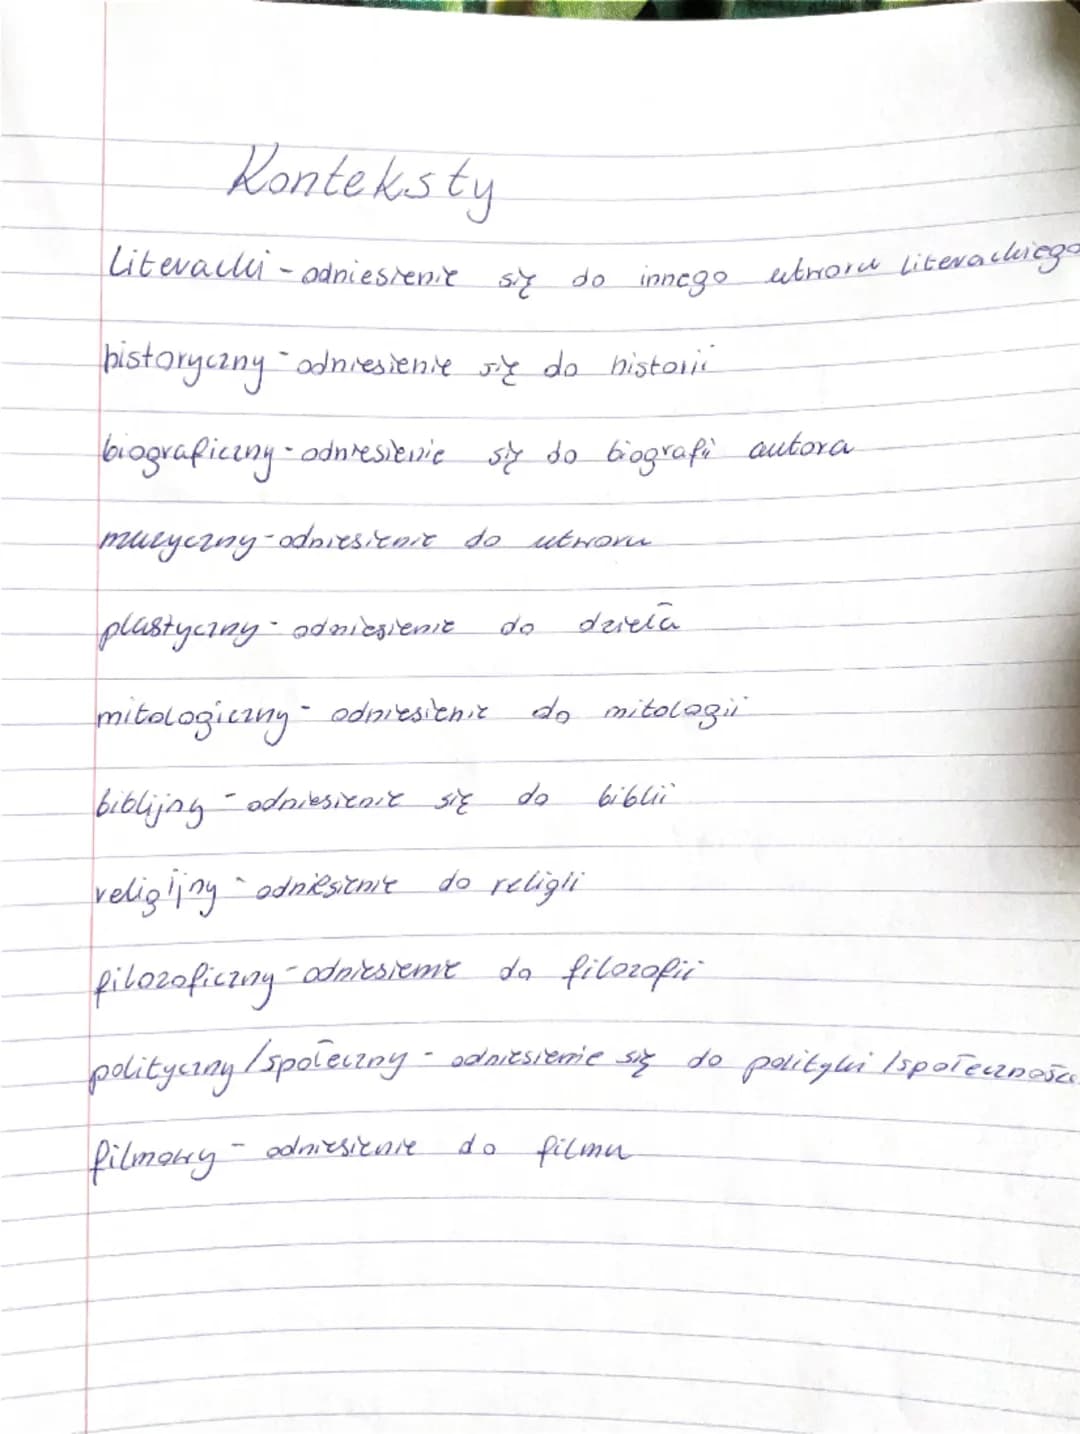 Konteksty
Literacki - odniesienie się do innego utworu literackiego
historyczny - odniesienie się do historii
biograficzny - odniesienie się do biografii autora
muzyczny - odniesienie do utworu
plastyczny - odniesienie do dzieła
mitologiczny - odniesienie do mitologii
biblijny - odniesienie się do biblii
religijny - odniesienie do religii
filozoficzny - odniesienie do filozofii
polityczny/społeczny - odniesienie się do polityki/społeczności
filmowy - odniesienie do filmu